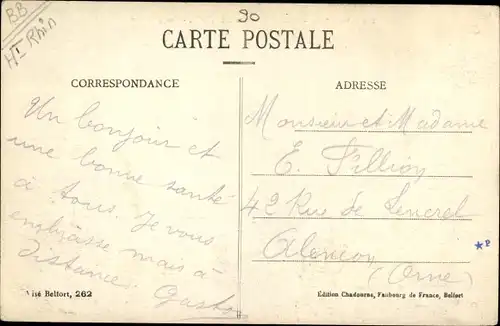 BB
Ht Rhin
90
CARTE POSTALE
CORRESPONDANCE
ADRESSE
Un bonjour et
une bonne santé
à tous. Je vous
embrasse mais à
distance. Gaston
Monsieur et Madame
E. Fillion
42 Rue de Lencrel
Alencon
(Orne)
*P
isé Belfort, 262
Édition Chadourne, Faubourg de France, Belfort